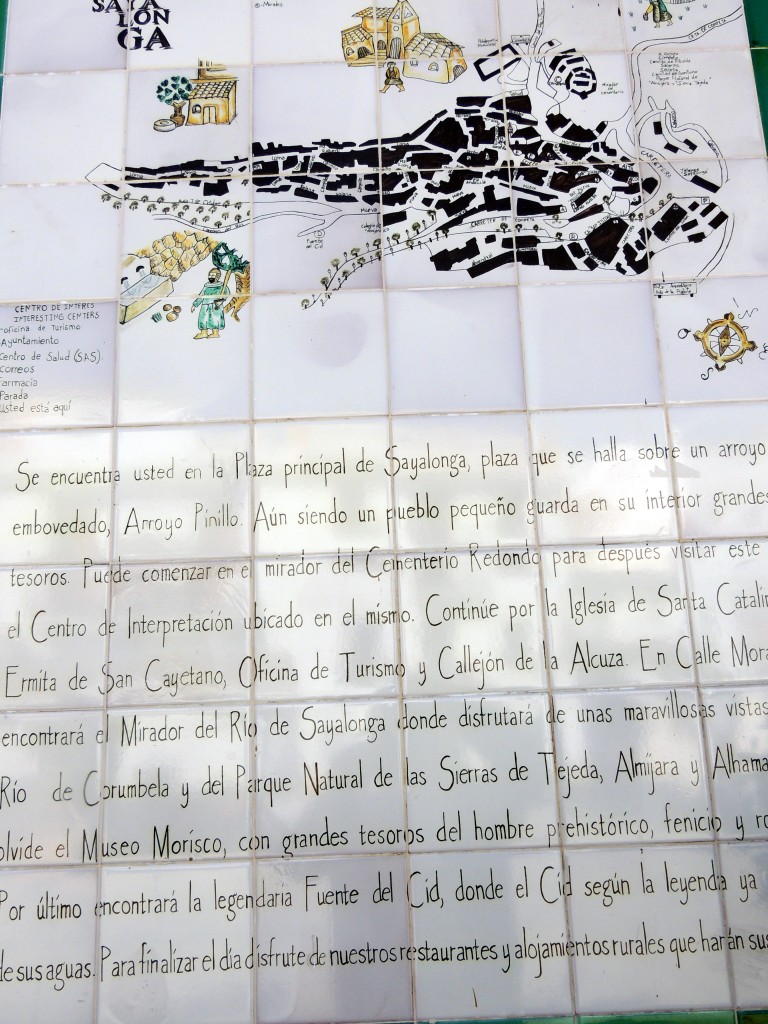 SAYA
LON
GA
CTRA DE COMPETA
Mirador
del
cementerio
CARRETERA
CARRETERA DE COMPETA
Fuente
del
Cid
CENTRO DE INTERES
INTERESTING CENTERS
oficina de Turismo
Ayuntamiento
Centro de Salud (SAS)
correos
Farmacia
Parada
Usted está aquí
N
S
Se encuentra usted en la Plaza principal de Sayalonga, plaza que se halla sobre un arroyo
embovedado, Arroyo Pinillo. Aún siendo un pueblo pequeño guarda en su interior grandes
tesoros. Puede comenzar en el mirador del Cementerio Redondo para después visitar este
el Centro de Interpretación ubicado en el mismo. Continúe por la Iglesia de Santa Catalin
Ermita de San Cayetano, Oficina de Turismo y Callejón de la Alcuza. En Calle Mora
encontrará el Mirador del Río de Sayalonga donde disfrutará de unas maravillosas vistas
Río de Corumbela y del Parque Natural de las Sierras de Tejeda, Almijara y Alhama
olvide el Museo Morisco, con grandes tesoros del hombre prehistórico, fenicio y ro
Por último encontrará la legendaria Fuente del Cid, donde el Cid según la leyenda ya
de sus aguas. Para finalizar el día disfrute de nuestros restaurantes y alojamientos rurales que harán sus